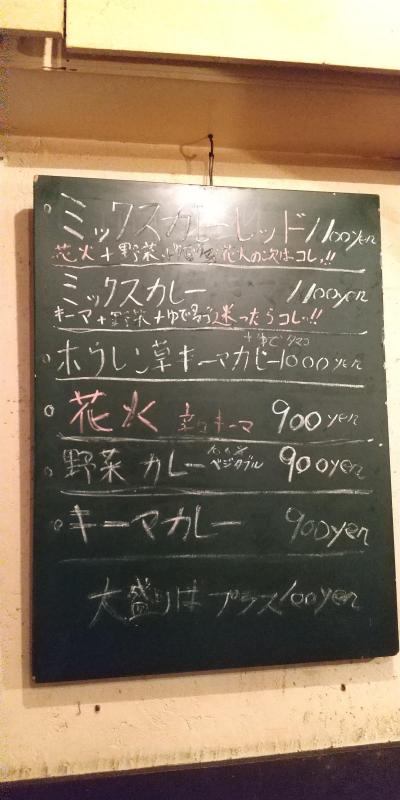 ミックスカレーレッド 1100yen
花火+野菜+ゆで卵 花火の次はコレ!!
ミックスカレー 1100yen
キーマ+野菜+ゆで卵 迷ったらコレ!!
+ゆでタマゴ
ホウレン草キーマカレー1000yen
花火 辛口キーマ 900yen
野菜カレー ベジタブル 900yen
キーマカレー 900yen
大盛りはプラス100yen